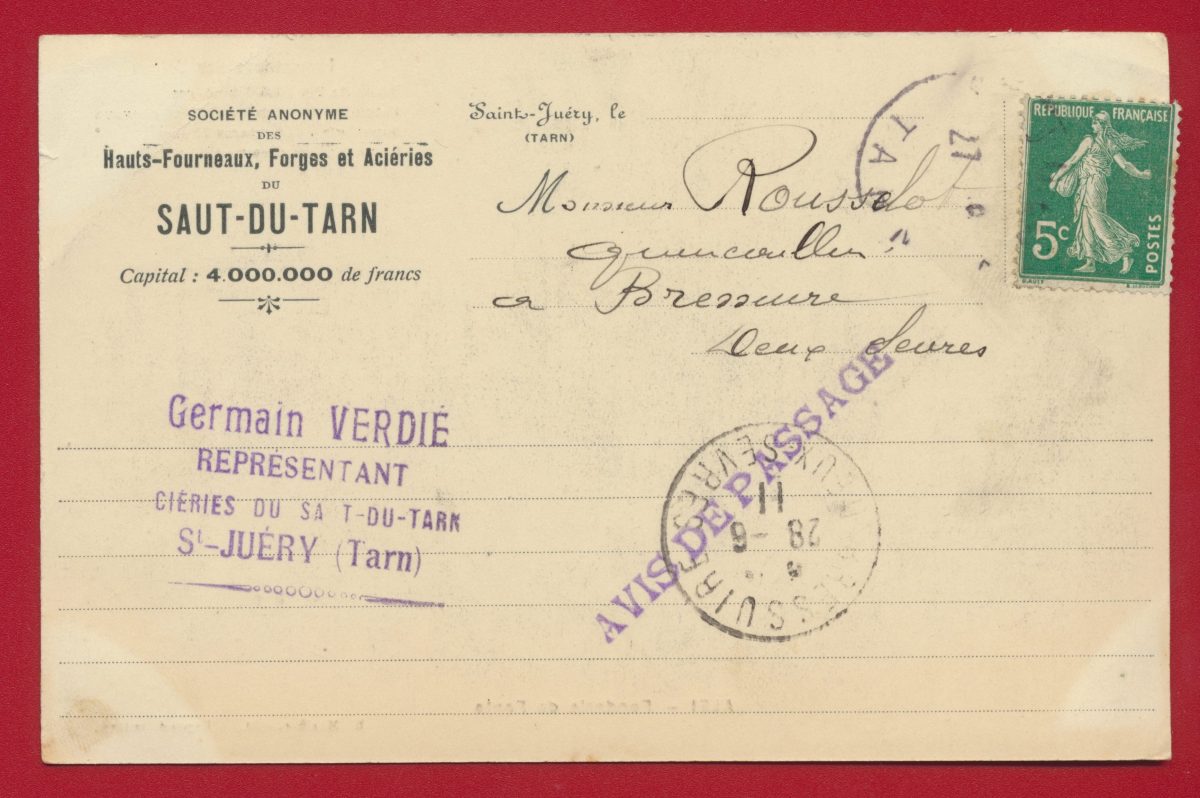 SOCIÉTÉ ANONYME
DES
Hauts-Fourneaux, Forges et Aciéries
DU
SAUT-DU-TARN
Capital : 4.000.000 de francs
Saint-Juéry, le
(TARN)
TAR
27
RÉPUBLIQUE FRANÇAISE
5c
POSTES
Monsieur Rousselot
quincaillier
a Bressuire
Deux Sevres
Germain VERDIÉ
REPRÉSENTANT
CIÉRIES DU SA T-DU-TARN
St-JUÉRY (Tarn)
AVIS DE PASSAGE
BRESSUIRE
SEVRES
11
28 -6